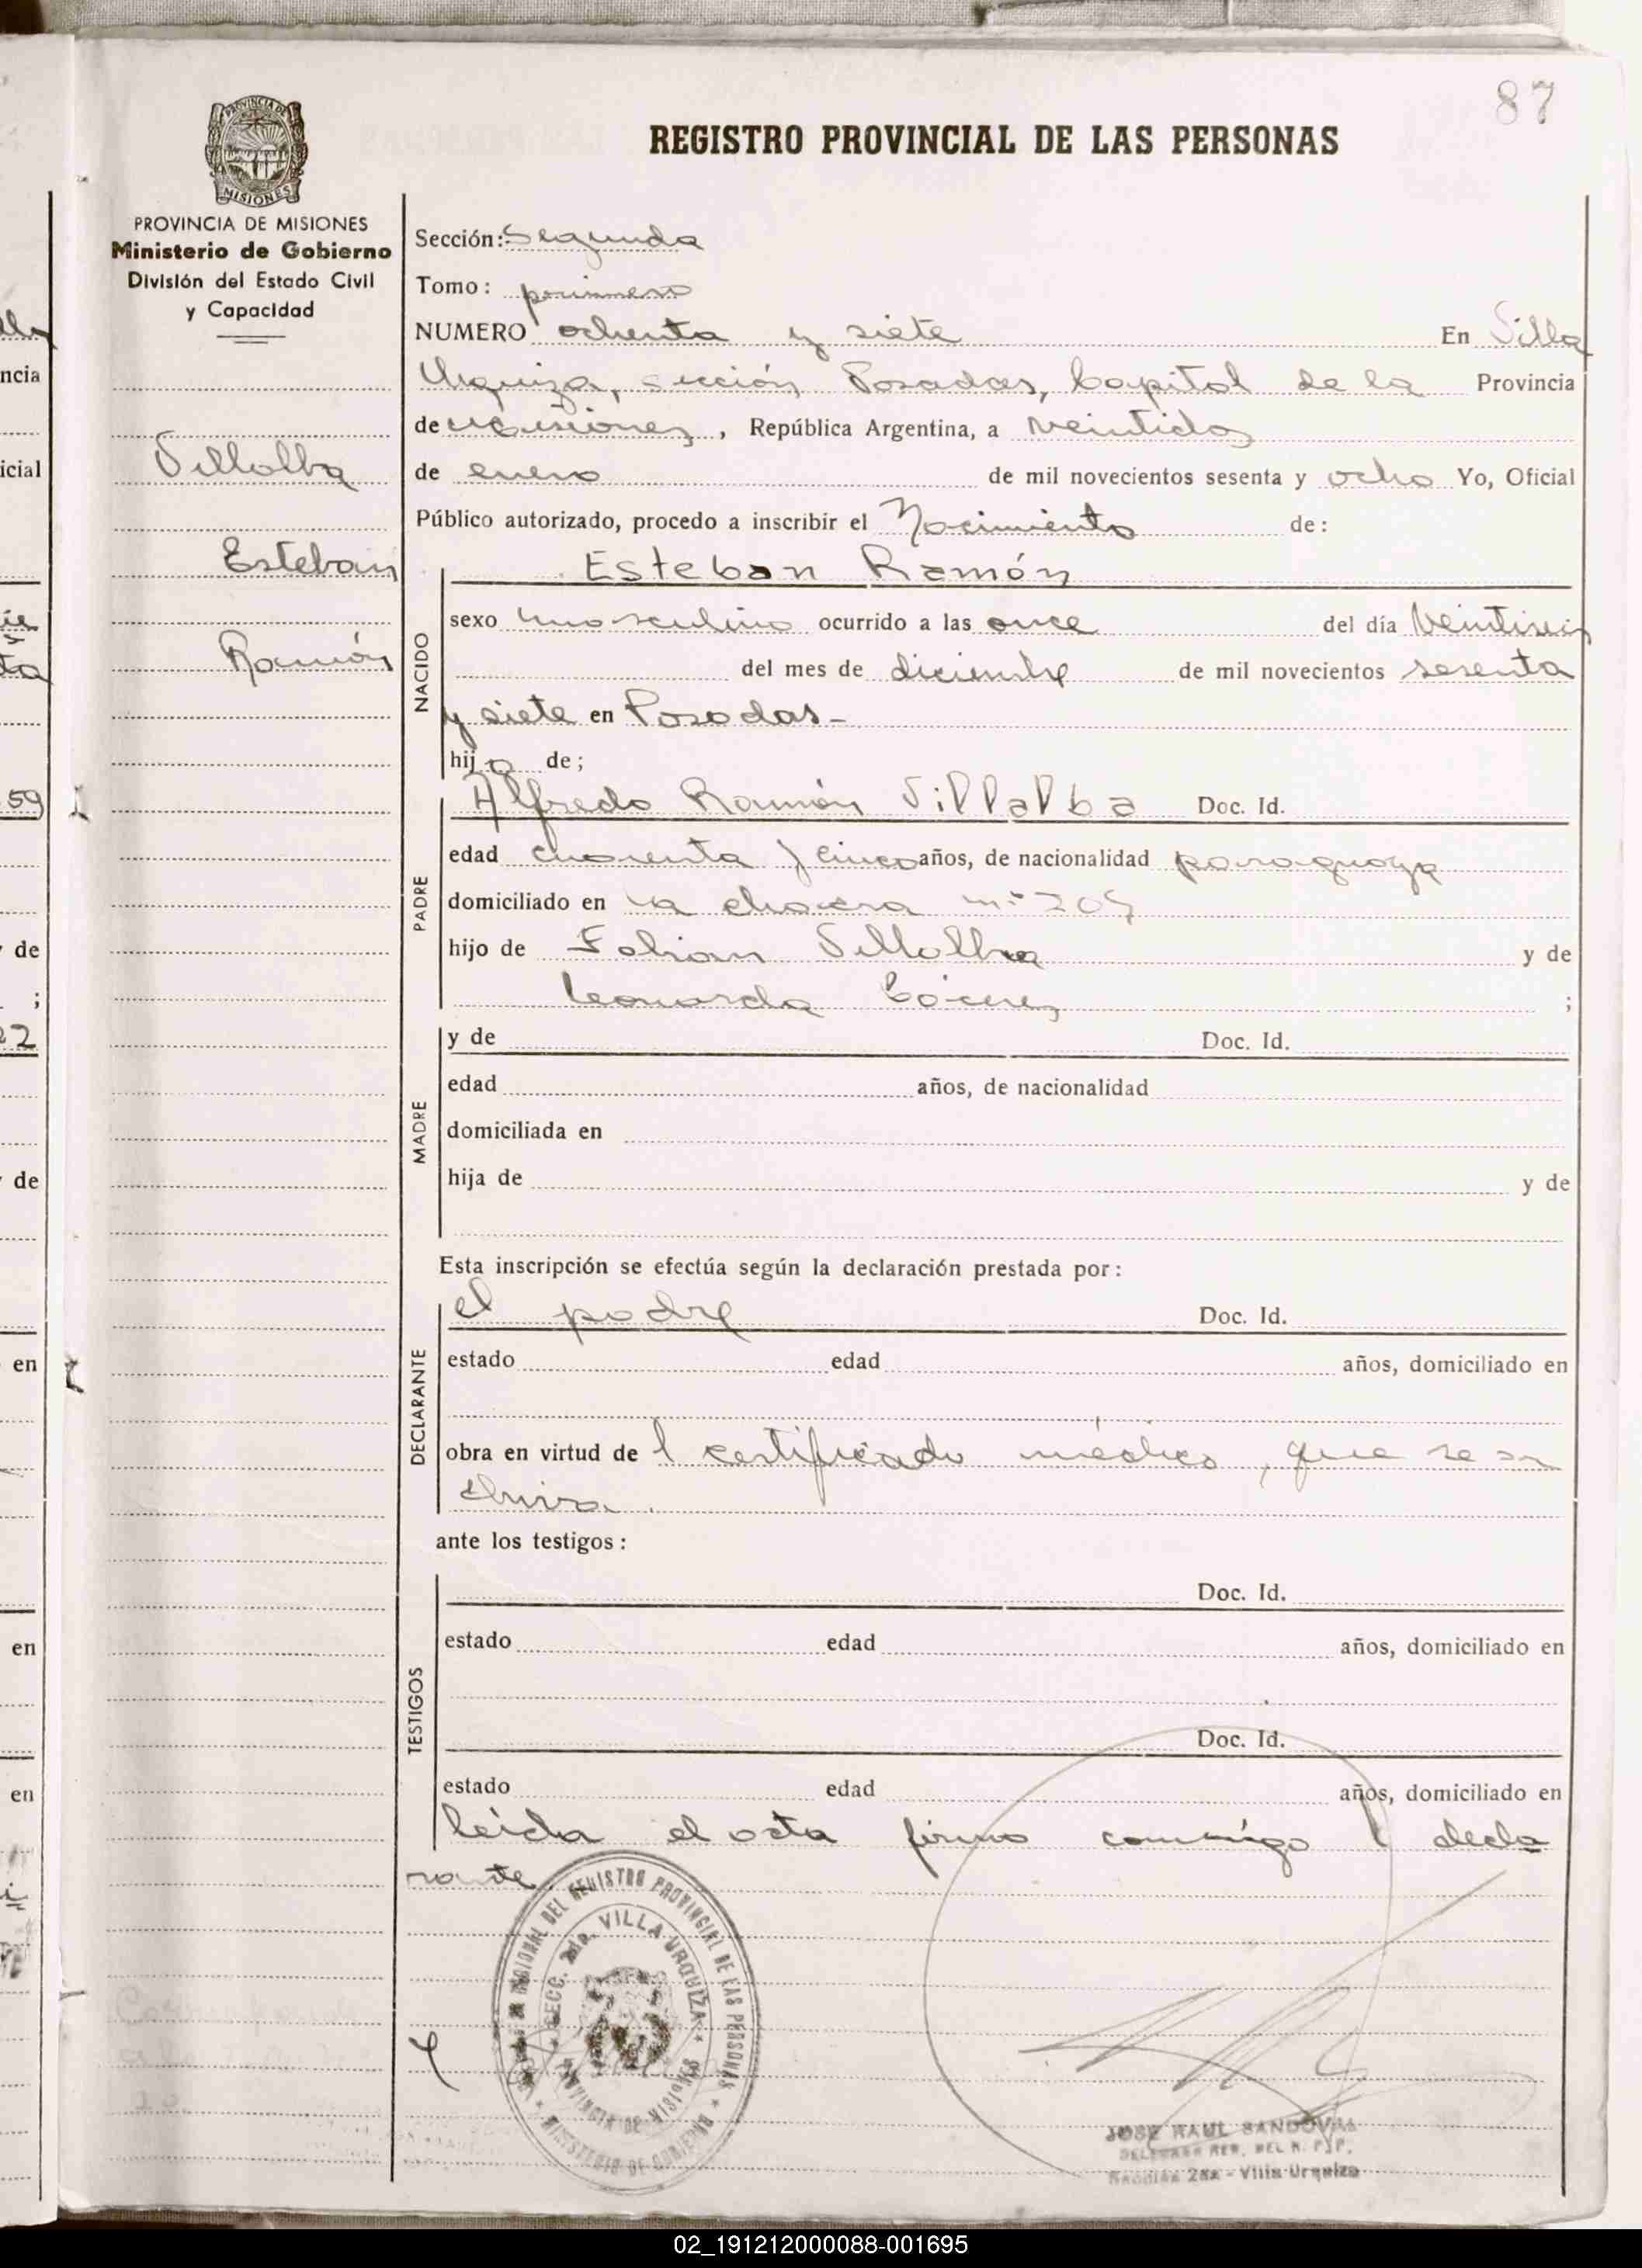 87
REGISTRO PROVINCIAL DE LAS PERSONAS
PROVINCIA DE
MISIONES
PROVINCIA DE MISIONES
Ministerio de Gobierno
División del Estado Civil
y Capacidad
Villalba
Esteban
Ramón
Sección: Segunda
Tomo: primero
NUMERO ochenta y siete En Villa
Urquiza, sección Posadas, Capital de la Provincia
de Misiones, República Argentina, a veintidos
de enero de mil novecientos sesenta y ocho Yo, Oficial
Público autorizado, procedo a inscribir el Nacimiento de:
Esteban Ramón
NACIDO
sexo masculino ocurrido a las once del día veintiseis
del mes de diciembre de mil novecientos sesenta
y siete en Posadas-
hijo de;
Alfredo Ramón Villalba Doc. Id.
PADRE
edad cuarenta y cinco años, de nacionalidad paraguaya
domiciliado en la chacra nº 209
hijo de Fabian Villalba y de
Leonarda ;
MADRE
y de Doc. Id.
edad años, de nacionalidad
domiciliada en
hija de y de
Esta inscripción se efectúa según la declaración prestada por:
el padre Doc. Id.
DECLARANTE
estado edad años, domiciliado en
obra en virtud de l certificado médico, que se ar
chiva.
ante los testigos:
TESTIGOS
Doc. Id.
estado edad años, domiciliado en
Doc. Id.
estado edad años, domiciliado en
Leida el acta firma conmigo l decla
rante
DEL REGISTRO PROVINCIAL DE LAS PERSONAS
SECC. 2da. VILLA URQUIZA
PROVINCIA DE MISIONES
MINISTERIO DE GOBIERNO
JOSE RAUL SANDOVAL
DEL R. P. P.
2da - Villa Urquiza
02_191212000088-001695